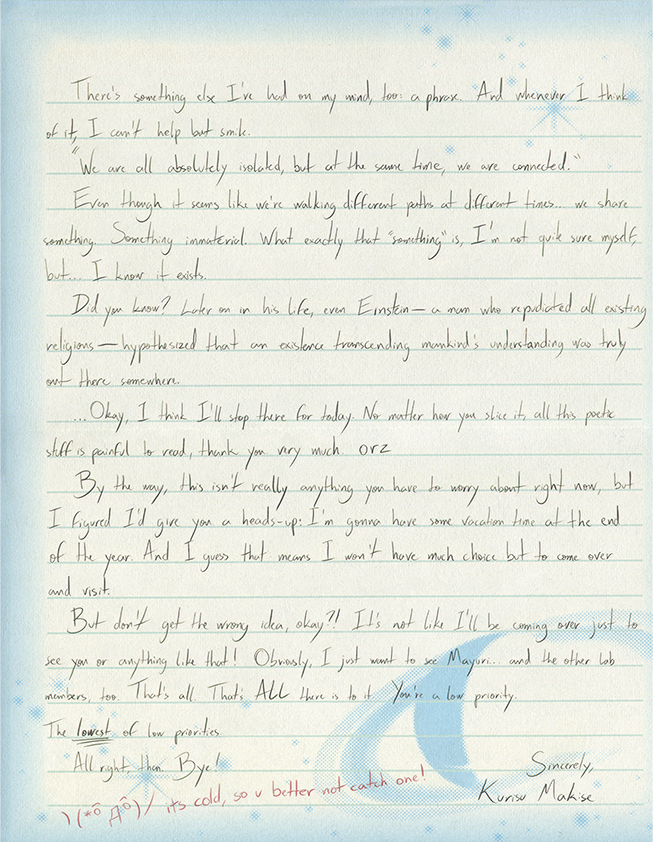 There's something else I've had on my mind, too: a phrase. And whenever I think
of it, I can't help but smile.
"We are all absolutely isolated, but at the same time, we are connected."
Even though it seems like we're walking different paths at different times... we share
something. Something immaterial. What exactly that "something" is, I'm not quite sure myself,
but... I know it exists.
Did you know? Later on in his life, even Einstein — a man who repudiated all existing
religions — hypothesized that an existence transcending mankind's understanding was truly
out there somewhere.
...Okay, I think I'll stop there for today. No matter how you slice it, all this poetic
stuff is painful to read, thank you very much orz
By the way, this isn't really anything you have to worry about right now, but
I figured I'd give you a heads-up: I'm gonna have some vacation time at the end
of the year. And I guess that means I won't have much choice but to come over
and visit.
But don't get the wrong idea, okay?! It's not like I'll be coming over just to
see you or anything like that! Obviously, I just want to see Mayuri... and the other lab
members, too. That's all. That's ALL there is to it. You're a low priority.
The lowest of low priorities.
All right, then Bye!
Sincerely,
Kurisu Makise
ヽ(*ôДô)/ its cold, so u better not catch one!